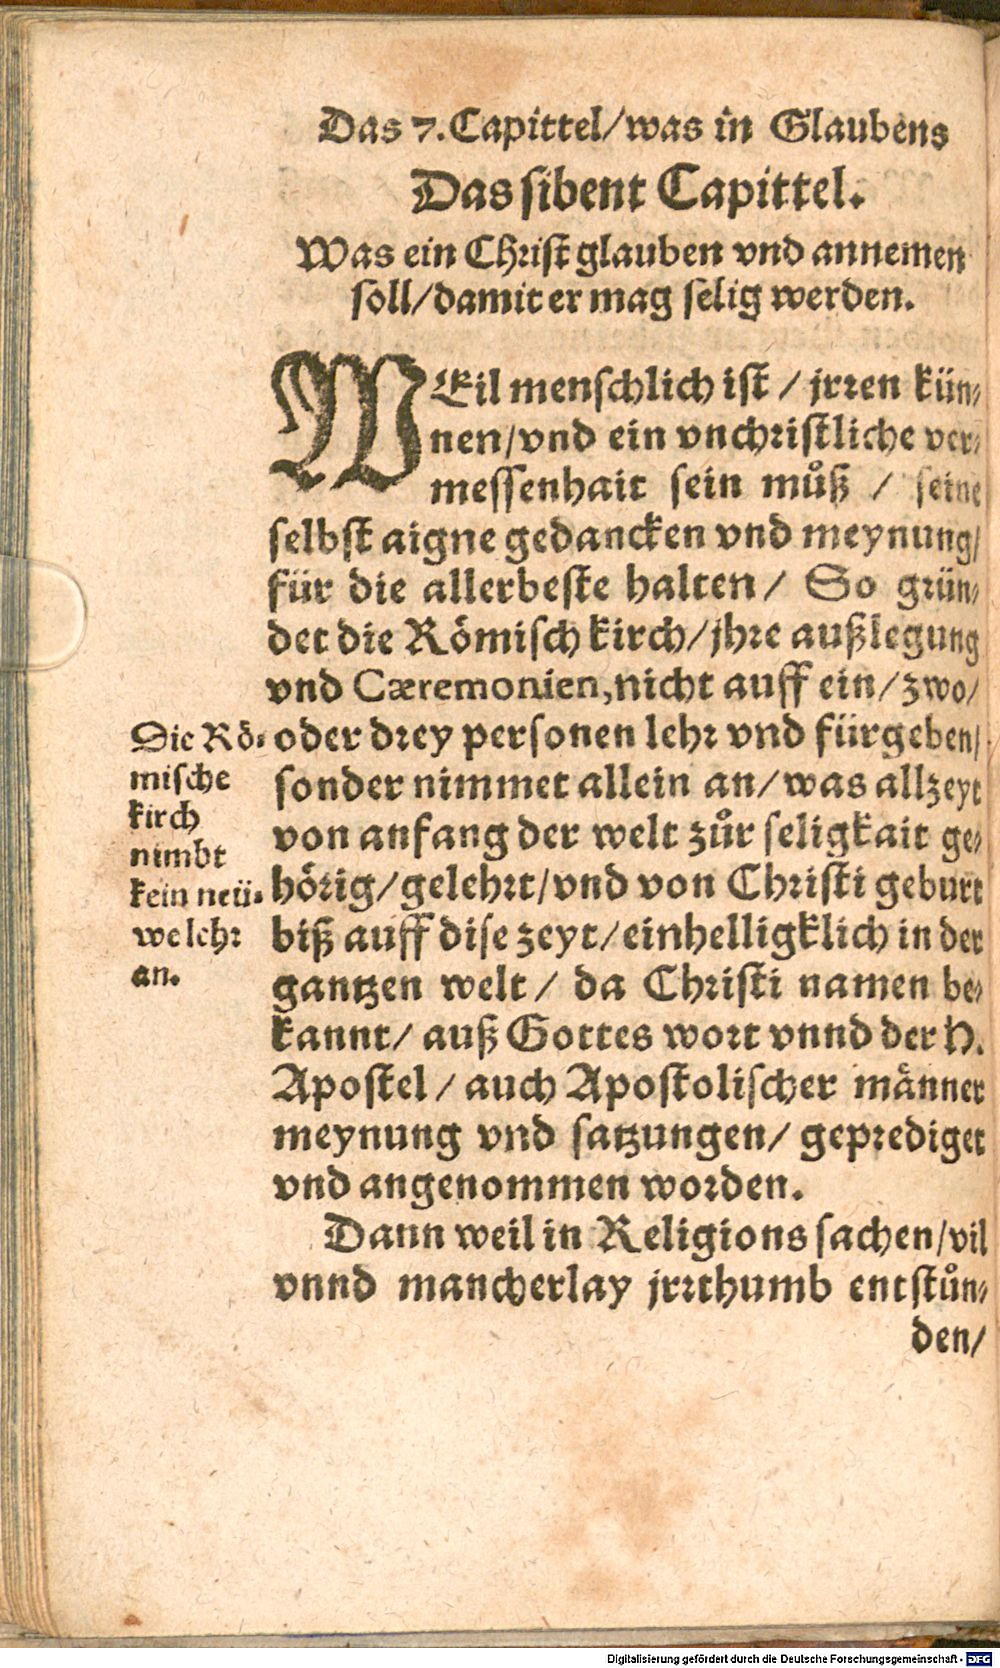 Das 7. Capittel/was in Glaubens
Das sibent Capittel.
Was ein Christ glauben vnd annemen
soll/damit er mag selig werden.
WEil menschlich ist / jrren kün-
nen/vnd ein vnchristliche ver-
messenhait sein můß / seine
selbst aigne gedancken vnd meynung/
für die allerbeste halten/ So grün-
det die Römisch kirch/jhre außlegung
vnd Cæremonien,nicht auff ein/zwo/
oder drey personen lehr vnd fürgeben/
sonder nimmet allein an/was allzeyt
von anfang der welt zůr seligkait ge-
hörig/gelehrt/vnd von Christi geburt
biß auff dise zeyt/einhelligklich in der
gantzen welt/ da Christi namen be-
kannt/ auß Gottes wort vnnd der H.
Apostel/ auch Apostolischer männer
meynung vnd satzungen/ geprediget
vnd angenommen worden.
Dann weil in Religions sachen/vil
vnnd mancherlay jrrthumb entstůn-
den/
Die Rö-
mische
kirch
nimbt
kein neü-
we lehr
an.
Digitalisierung gefördert durch die Deutsche Forschungsgemeinschaft - DFG